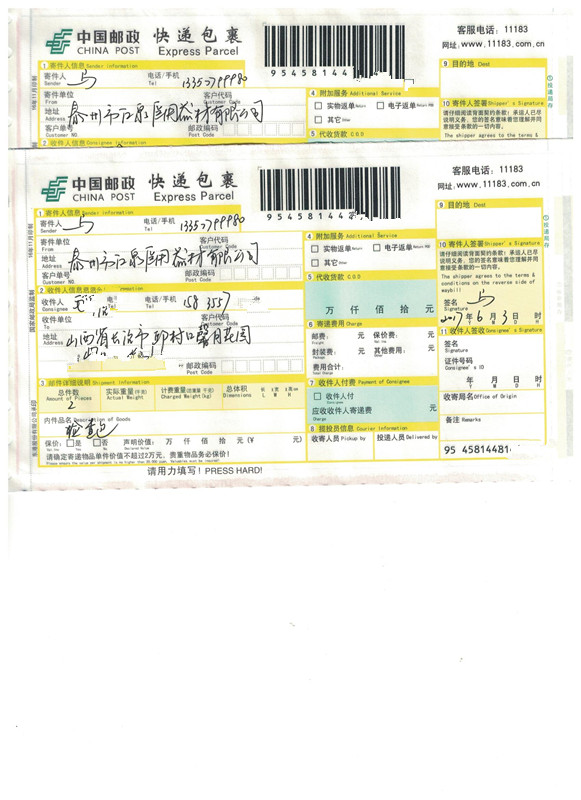 中国邮政 快递包裹
CHINA POST Express Parcel
客服电话：11183
网址：www.11183.com.cn
95458144
1 寄件人信息 Sender information
寄件人 Sender 马 电话/手机 Tel 13357799980
寄件单位 From
客户代码 Customer Code
地址 Address 泰州市江泉医用器材有限公司
客户单号 Customer NO. 邮政编码 Post Code
4 附加服务 Additional Service
实物返单 电子返单
其它
5 代收货款 C.O.D
9 目的地 Dest
10 寄件人签署 Shipper's Signature
请仔细阅读背面契约条款！承运人已尽
说明义务，您的签名意味着您理解并同
意接受条款的一切内容。
The shipper agrees to the terms &
中国邮政 快递包裹
CHINA POST Express Parcel
客服电话：11183
网址：www.11183.com.cn
95458144
1 寄件人信息 Sender information
寄件人 Sender 马 电话/手机 Tel 13357799980
寄件单位 From
客户代码 Customer Code
地址 Address 泰州市江泉医用器材有限公司
客户单号 Customer NO 邮政编码 Post Code
2 收件人信息
收件人 Consignee 电话/手机 Tel 158 3557
收件单位 To
客户代码 Customer Code
地址 Address 山西省长治市 村口馨月花园
邮政编码 Post Code
3 邮件详细说明 Shipment information
总件数 Amount of Pieces 实际重量(千克) Actual Weight 计费重量 Charged Weight(kg) 总体积 Dimensions 长 L X宽 W X高 H
2
内件品名 Description of Goods
检查包
保价： 是 Yes 否 No 声明价值： 万 仟 佰 拾 元(¥ 元)
请确定寄递物品单件价值不超过2万元，贵重物品务必保价！
4 附加服务 Additional Service
实物返单 电子返单
其它
5 代收货款 C.O.D
万 仟 佰 拾 元
6 寄递费用 Charge
邮费： 元 保价费： 元
封装费： 元 其他费用： 元
费用合计： 元
7 收件人付费 Payment of Consignee
收件人付
应收收件人寄递费 元
8 揽投员信息 Courier information
收寄人员 Pickup by 投递人员 Delivered by
9 目的地 Dest
10 寄件人签署 Shipper's Signature
请仔细阅读背面契约条款！承运人已尽
说明义务，您的签名意味着您理解并同
意接受条款的一切内容。
The shipper agrees to the terms &
conditions on the reverse side of
waybill
签名 Signature 马
2017年6月3日 时
11 收件人签收 Consignee's Signature
签名 Signature
证件号码 Consignee's ID
年 Y 月 M 日 D 时 H
收寄局 Office of Origin
备注 Remarks
95 45814481
请用力填写！PRESS HARD!